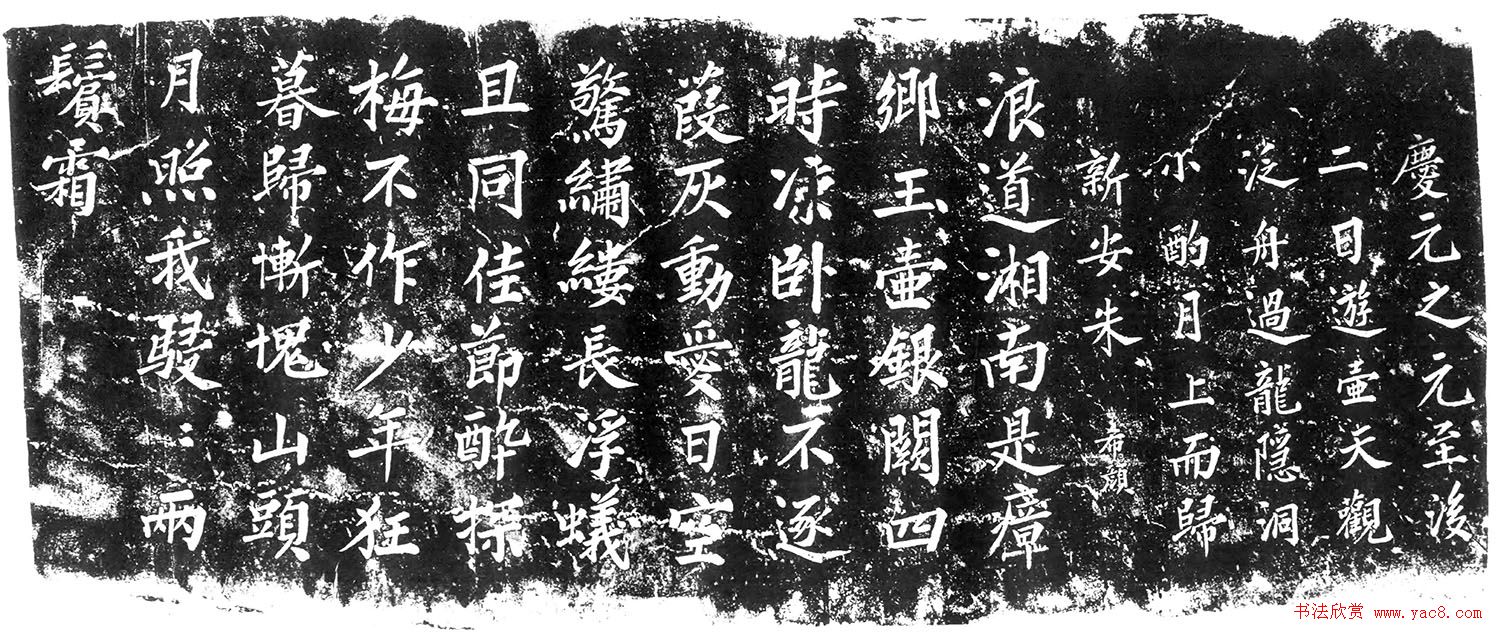 慶元之元至後
二日遊壺天觀
泛舟過龍隱洞
小酌月上而歸
新安朱希顔
浪道湘南是瘴
鄉玉壺銀闕四
時凉卧龍不逐
葭灰動愛日空
驚繡縷長浮蟻
且同佳節醉探
梅不作少年狂
暮歸慚愧山頭
月照我駸〻兩
鬢霜
书法欣赏 www.yac8.com